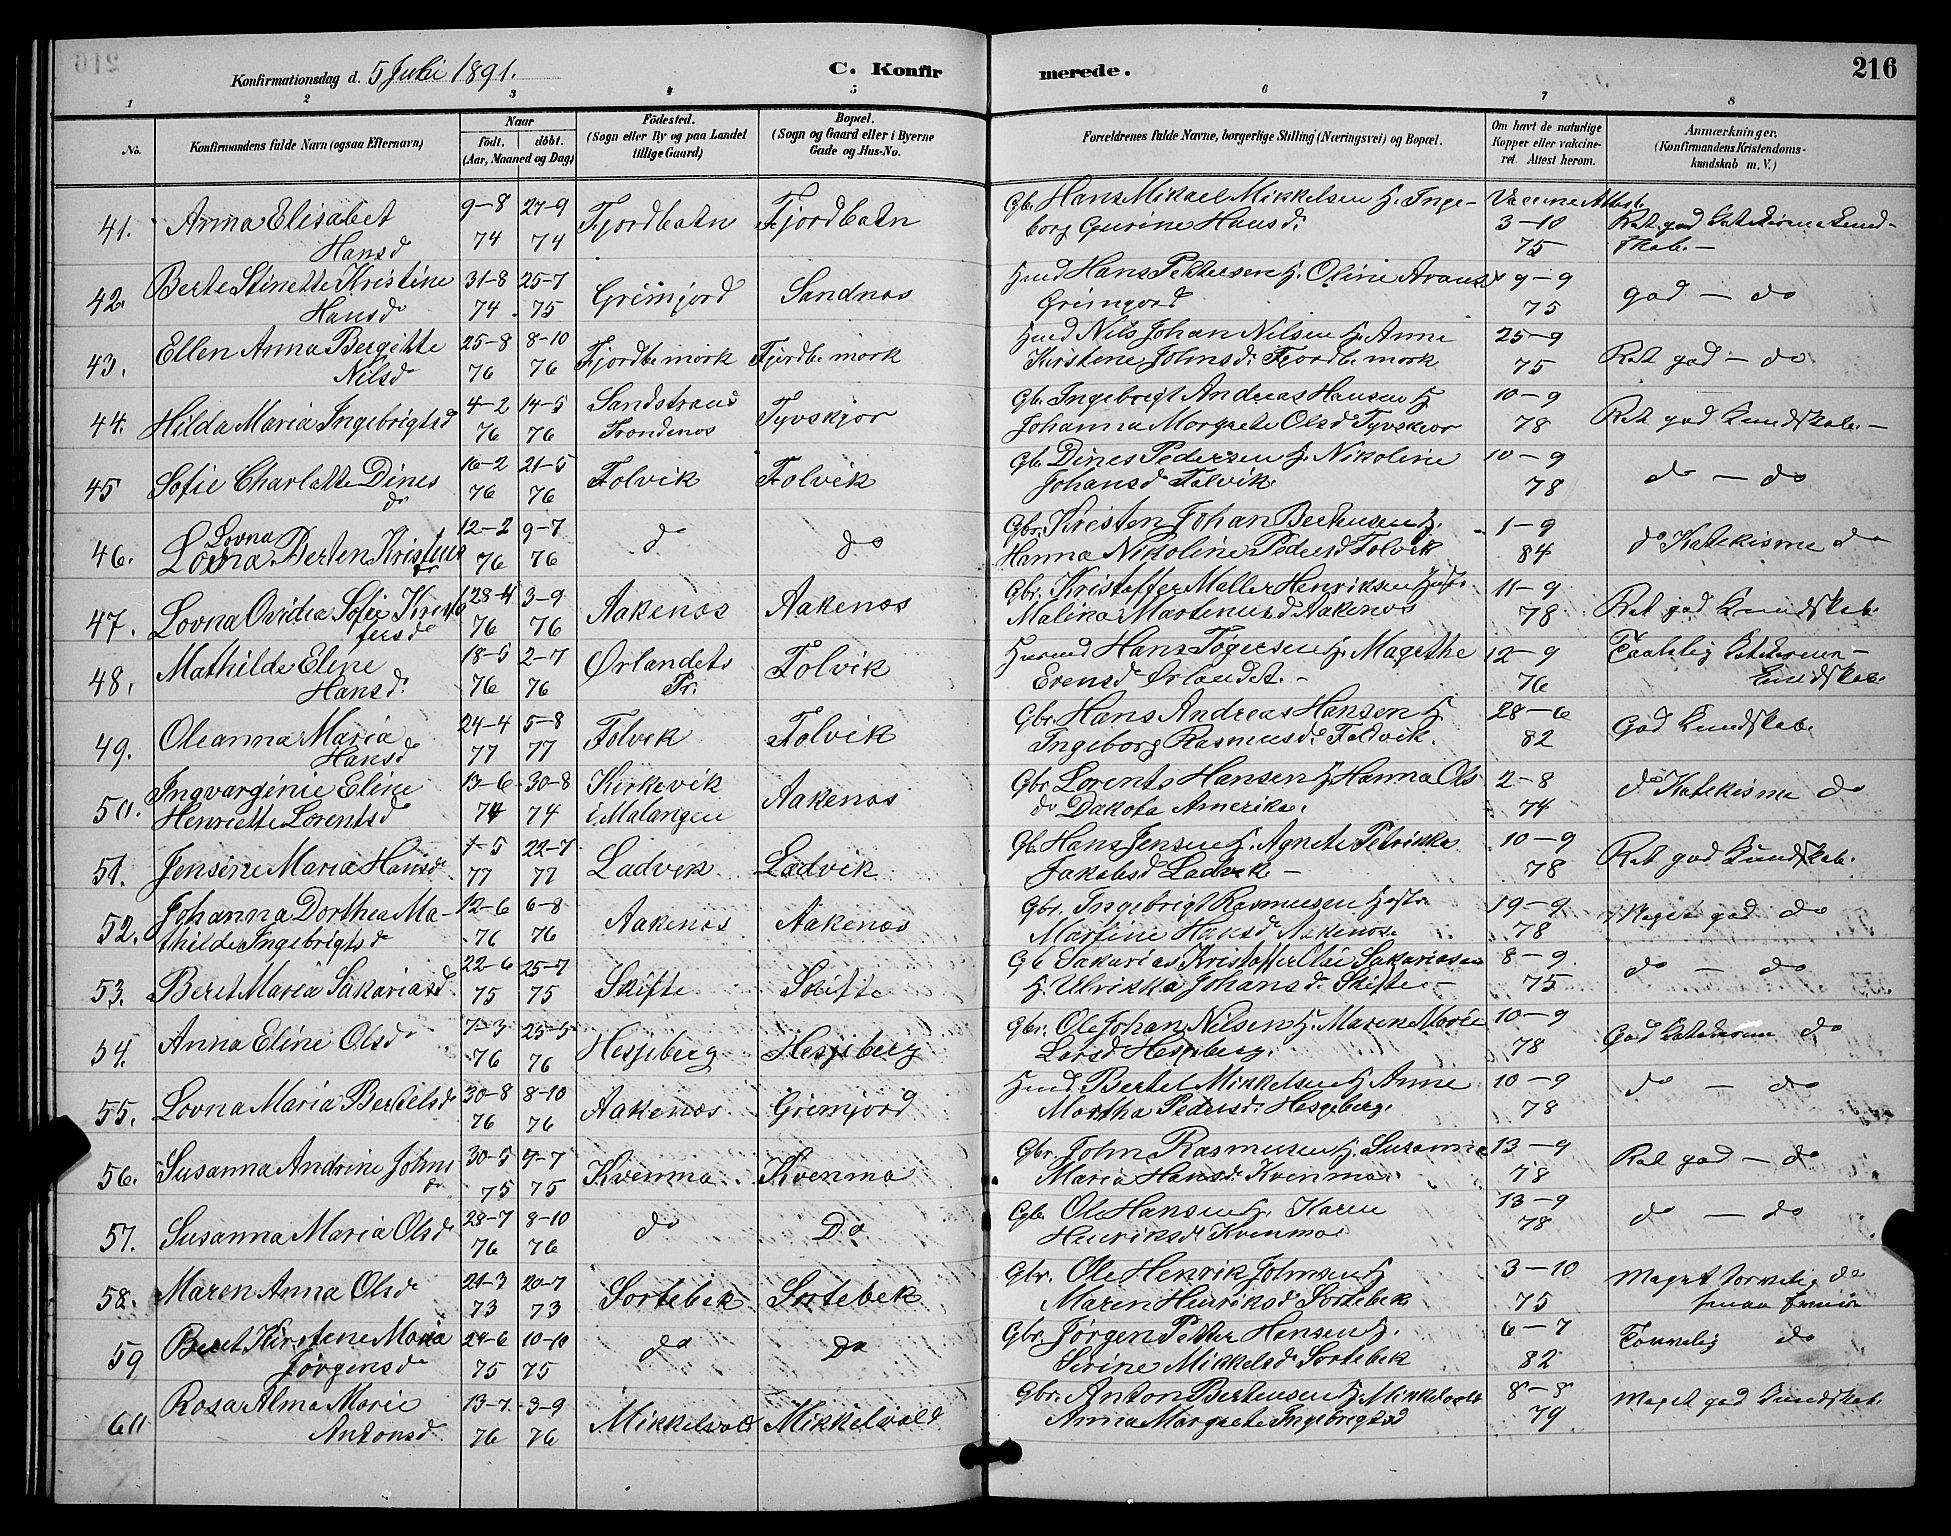 216
Konfirmationsdag d. 5 Juli 1891.
C. Konfirmerede.
1 2 3 4 5 6 7 8
No.
Konfirmandens fulde Navn (ogsaa Efternavn)
Naar
födt. döbt.
(Aar, Maaned og Dag)
Födested.
(Sogn eller By og paa Landet tillige Gaard)
Bopæl.
(Sogn og Gaard eller i Byerne Gade og Hus-No.
Forældrenes fulde Navne, borgerlige Stilling (Næringsvei) og Bopæl.
Om havt de naturlige Kopper eller vakcineret. Attest herom.
Anmærkninger.
(Konfirmandens Kristendomskundskab m. V.)
41. Anna Elisabet 9-8 27-9 Fjordbatn Fjordbatn Gb. Hans Mikael Mikkelsen H. Inge-
Hansd 74 74 borg Gurine Hansd. 3-10 75 Ret god Kund-
skab. -
42. Berte Stinette Kristine 31-8 25-7 Grimjord Sandnæs Hmd Hans Pettersen H. Oline 9-9 god - do
Hansd 74 75 75
43. Ellen Anna Bergitte 25-8 8-10 Fjordbemork Fjordbemork Hmd Nils Johan Nilsen H. Anne 25-9 Ret god - do
Nilsd 76 76 Kirstine Johnsd. Fjordbemork 75
44. Hilda Maria Ingebrigtsd 4-2 14-5 Sandstrand Tyvskjær Gb. Ingebrigt Andreas Hansen H 10-9 Ret god Kundskab. -
76 76 Trondenæs Johanna Morgrete Olsd Tyvskjær 78
45 Sofie Charlotte Dines 16-2 21-5 Folvik Folvik Gb. Dines Pedersen H. Nikoline 10-9 do - do
d 76 76 Johansd Folvik. 78
46. Lovna 12-2 9-7 do do Gbr. Kristen Johan Bertensen H. 1-9 do Katekisme do
Lovna Berten Kristens 76 76 Hanna Nikoline Pedersd Folvik 84
47. Lovna Ovidia Sofie Krist 28-4 3-9 Aakenæs Aakenæs Gbr. Kristoffer Møller Henriksen Hust. 11-9 Ret god Kundskab.
fersd 76 76 Malina Martinusd Aakenæs 78
48. Mathilde Eline 18-5 2-7 Ørlandets Folvik Hans H. Magrethe 12-9
Hansd. 76 76 Pr. Ørlandet. - 76 Kundskab.
49. Oleanna Maria 24-4 5-8 Folvik Folvik Gbr. Hans Andreas Hansen H 28-6 God Kundskab.
Hansd 77 77 Ingeborg Rasmusd. Foldvik. 82
50. Ingvarginie Eline 13-6 30-8 Kirkevik Aakenæs Gbr Lorents Hansen H Hanna Ols 2-8 do Katekisme do
Henriette Lorentsd 74 74 i Malangen do Dakota Amerika. 74
51. Jensine Maria Hansd 1-5 22-7 Ladvik Ladvik Gb. Hans Jensen H. Agnete Petrikke 10-9 Ret god Kundskab.
77 77 Jakobsd Ladvik - 78
52. Johanna Dorthea Ma- 12-6 6-8 Aakenæs Aakenæs Gbr. Ingebrigt Rasmusen Hustr. 19-9 Meget god do
thilde Ingebrigtsd 76 76 Martine Hansd Aakenæs. 78
53. Beret Maria Sakariasd. 22-6 25-7 Skifte Skifte Gb Sakarias Sakariasen 8-9 do - do
75 75 H. Ulrikka Johansd. Skifte - 75
54. Anna Eline Olsd 7-3 25-5 Hesjeberg Hesjeberg Gbr. Ole Johan Nilsen H. Maren Marie 10-9 God do
76 76 Larsd Hesjeberg. 78
55. Lovna Maria Bertelsd 30-8 8-10 Aakenæs Grimjord Hmd. Bertel Mikkelsen H Anne 10-9 do - do
76 76 Martha Pedersd. Hesgeberg. 78
56. Susanna Andrine Johns 30-5 9-7 Kvenmo Kvenmo Gbr. John Rasmusen H. Susanne 13-9 Ret god - do
d 75 75 Maria Hansd. Kvenmo. 78
57. Susanna Maria Olsd 28-7 8-10 do Do Gb. Ole Hansen H. Karen 13-9 do - do
76 76 Henriksd Kvenmo 78
58. Maren Anna Olsd 21-3 20-7 Sortebek Sortebek Gbr. Ole Henrik Johnsen H 3-10 Meget do
73 73 Maren Henriksd Sortebek 75
59 Beret Kirstene Maria 24-6 10-10 do Do Gbr. Jørgen Petter Hansen H. 6-7 do
Jørgensd 75 75 Serine Mikkelsd Sortebek 82
60 Rosa Alma Marie 13-7 3-9 Mikkelvold Mikkelvold Gbr. Anton Bertensen H Mikkelvold 8-8 Meget god Kundskab.
Antonsd. 76 76 Anna Margrete Ingebrigtsd 79